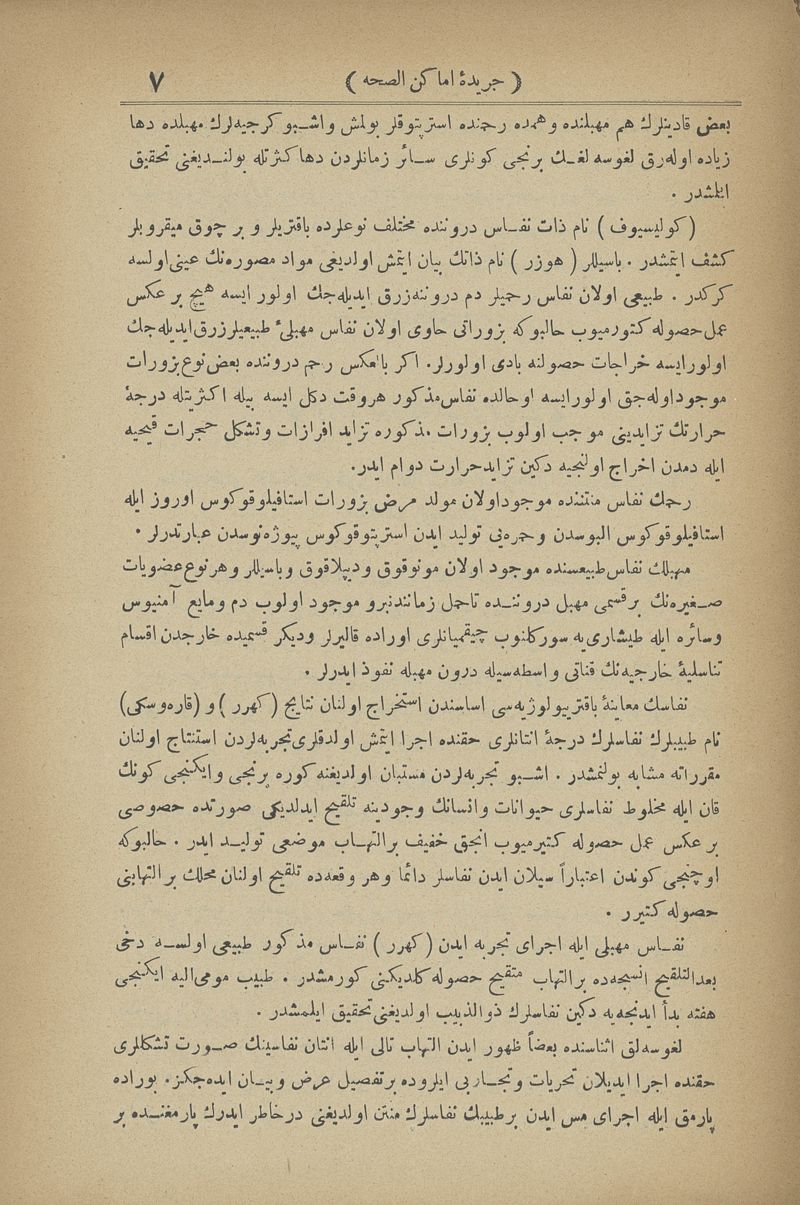 ( جریدهٔ اماكن الصحه ) ٧
بعض قادینلرك هم مهبلنده وهمده رحمنده استرپتوقلر بولمش واشبو كرجیه‌لرك مهبلده دها
زیاده اوله‌رق لغوسه لغك برنجی كونلری سائر زمانلردن دها كثرتله بولندیغنی تحقیق
ایلمشدر .
( كولیسیوف ) نام ذات نفاس دروننده مختلف نوعلرده باقتریلر و بر چوق میقروبلر
كشف ایتمشدر . باسیللر ( هوزر ) نام ذاتك بیان ایتمش اولدیغی مواد مصوره‌نك عینی اولسه
كركدر . طبیعی اولان نفاس رحمیلر دم دروننه زرق ایدیله‌جك اولور ایسه هیچ بر عكس
عمل حصوله كتورمیوب حالبوكه بزوراتی حاوی اولان نفاس مهبلیٔ طبیعیلر زرق ایدیله‌جك
اولورایسه خراجات حصولنه بادی اولورلر. اكر بالعكس رحم دروننده بعض نوع بزورات
موجود اوله‌جق اولورایسه اوحالده نفاس مذكور هروقت دكل ایسه بیله اكثریتله درجهٔ
حرارتك تزایدینی موجب اولوب بزورات مذكوره تزاید افرازات وتشكل حجرات قیحیه
ایله دمدن اخراج اولنجیه دكین تزاید حرارت دوام ایدر.
رحمك نفاس منتننده موجود اولان مولد مرض بزورات استافیلوقوكوس اوروز ایله
استافیلوقوكوس البوسدن وحمره‌یی تولید ایدن استرپتوقوكوس پیوژه‌نوسدن عبارتدرلر .
مهبلك نفاس طبیعسنده موجود اولان مونوقوق ودیپلاقوق وباسیللر وهر نوع عضویات
صغیره‌نك برقسمی مهبل دروننده تاحمل زمانندنبرو موجود اولوب دم ومایع آمنیوس
وسائره ایله طیشاری‌یه سوركلنوب چیقمیانلری اوراده قالیرلر ودیكر قسمیده خارجدن اقسام
تناسلیهٔ خارجیه‌نك قناتی واسطه‌سیله درون مهبله نفوذ ایدرلر .
نفاسك معاینهٔ باقتریولوژیه‌سی اساسندن استخراج اولنان نتایج ( كهرر ) و (قاره‌وسكی)
نام طبیبلرك نفاسلرك درجهٔ انتانلری حقنده اجرا ایتمش اولدقلری تجربه‌لردن استنتاج اولنان
مقرراته مشابه بولنمشدر . اشبو تجربه‌لردن مستبان اولدیغنه كوره برنجی وایكنجی كونك
قان ایله مخلوط نفاسلری حیوانات وانسانك وجودینه تلقیح ایدلدیكی صورتده خصوصی
بر عكس عمل حصوله كتیرمیوب انجق خفیف برالتهاب موضعی تولید ایدر . حالبوكه
اوچنجی كوندن اعتباراً سیلان ایدن نفاسلر دائما وهر وقعه‌ده تلقیح اولنان محلك برالتهابنی
حصوله كتیرر .
نفاس مهبلی ایله اجرای تجربه ایدن ( كهرر ) نفاس مذكور طبیعی اولسه دخی
بعدالتلقیح انسجه‌ده برالتهاب متقیح حصوله كلدیكنی كورمشدر . طبیب مومی‌الیه ایكنجی
هفته بدأ ایدنجه‌یه دكین نفاسلرك ذوالذبیب اولدیغنی تحقیق ایلمشدر .
لغوسه‌لق اثناسنده بعضاً ظهور ایدن التهاب تالی ایله انتان نفاسینك صورت تشكللری
حقنده اجرا ایدیلان تحریات وتجاربی ایلروده برتفصیل عرض وبیان ایده‌جكز. بوراده
پارمق ایله اجرای مس ایدن برطبیبك نفاسلرك منتن اولدیغنی درخاطر ایدرك پارمغنده بر